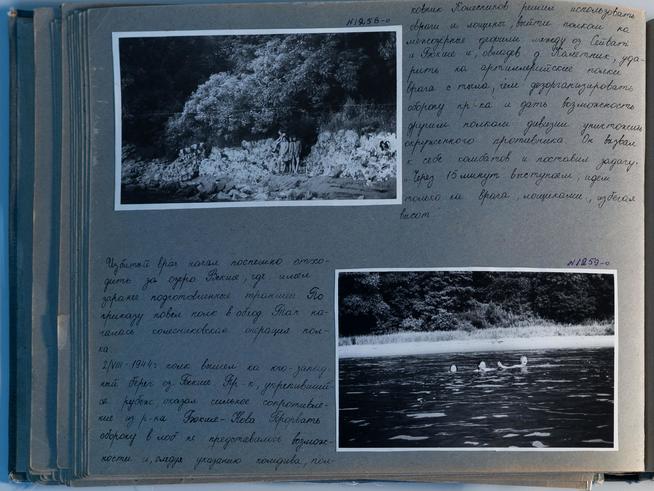 N1256-о
ковник Колесников решил использовать
овраги и лощины, выйти полком на
межозерные дефиле между оз Сейваты
и Бжкие и, овладев д. Калетник, уда-
рить на артиллерийские полки
врага с тыла, чем дезорганизировать
оборону пр-ка и дать возможность
другим полкам дивизии уничтожить
окруженного противника. Он вызвал
к себе комбатов и поставил задачу.
Через 15 минут выступаем, идем
только на врага, лощинами, избегая
высот
Избитый враг начал поспешно отхо-
дить за озера Бжкие, где имел
заранее подготовленные траншеи По
приказу повел полк в обход Так на-
чалась колесниковская операция пол-
ка.
2/VIII-1944г полк вышел на юго-запад-
ный берег оз Бжкие Пр-к, укрепивший-
ся рубеж, оказал сильное сопротивле-
ние из р-на Бжкие-Нова Прорвать
оборону в лоб не представлялось возмож-
ности и, следуя указанию комдива, пол-
N1257-о